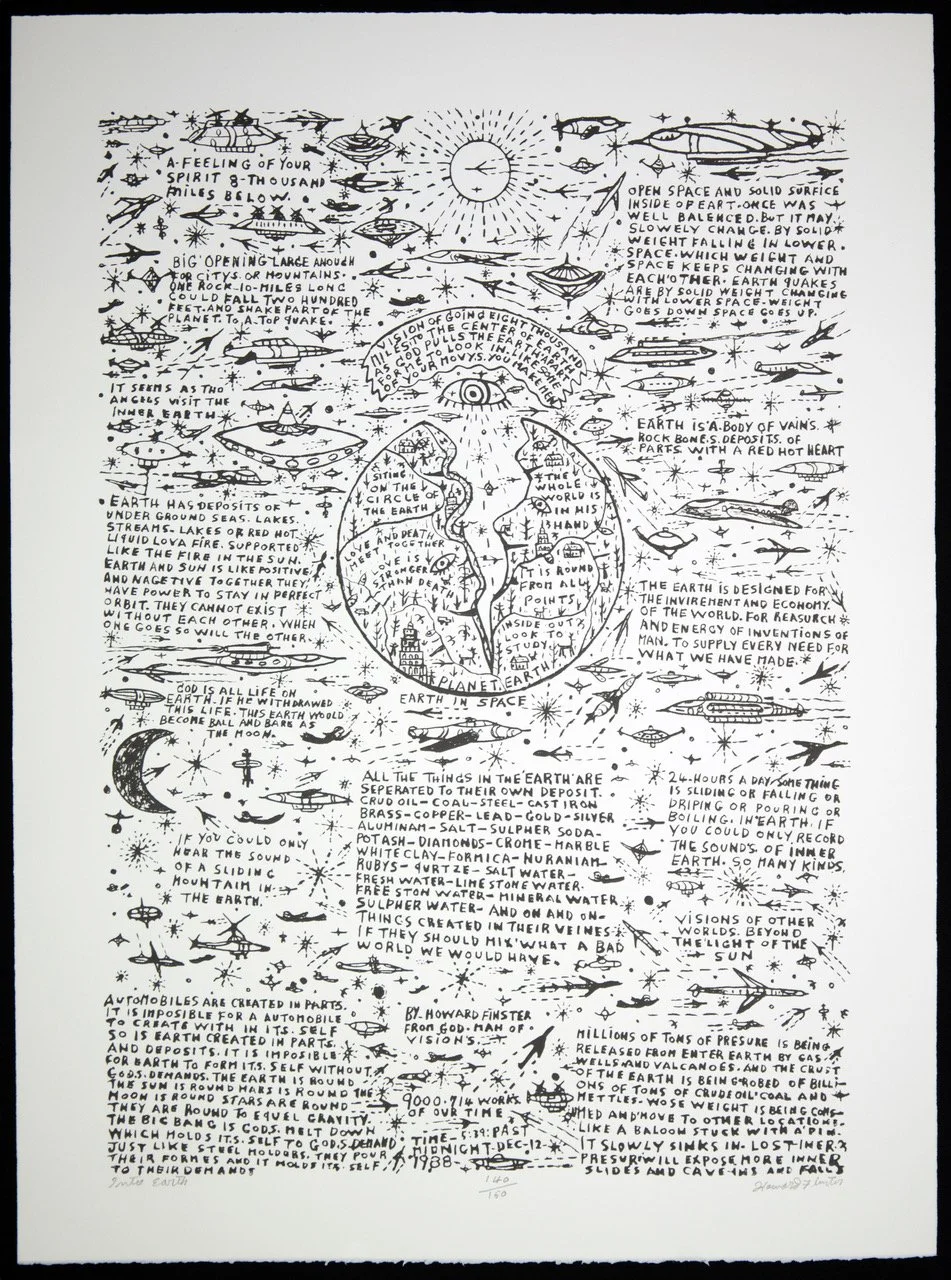 A FEELING OF YOUR
SPIRIT 8-THOUSAND
MILES BELOW.
BIG OPENING LARGE ANOUGH
FOR CITYS. OR MOUNTAINS.
ONE ROCK-10-MILES LONG
COULD FALL TWO HUNDRED
FEET. AND SHAKE PART OF THE
PLANET. TO A. TOP QUAKE.
IT SEEMS AS THO
ANGELS VISIT THE
INNER EARTH
EARTH HAS DEPOSITS OF
UNDER GROUND SEAS. LAKES.
STREAMS. LAKES OR RED HOT
LIQUID LOVA FIRE. SUPPORTED
LIKE THE FIRE IN THE SUN.
EARTH AND SUN IS LIKE POSITIVE
AND NAGETIVE TOGETHER THEY
HAVE POWER TO STAY IN PERFECT
ORBIT. THEY CANNOT EXIST
WITHOUT EACH OTHER. WHEN
ONE GOES SO WILL THE OTHER.
GOD IS ALL LIFE ON
EARTH. IF HE WITHDRAWED
THIS LIFE. THIS EARTH WOULD
BECOME BALL AND BARE AS
THE MOON.
IF YOU COULD ONLY
HEAR THE SOUND
OF A SLIDING
MOUNTAIM IN
THE EARTH.
AUTOMOBILES ARE CREATED IN PARTS.
IT IS IMPOSIBLE FOR A AUTOMOBILE
TO CREATE WITH IN ITS. SELF
SO IS EARTH CREATED IN PARTS.
AND DEPOSITS. IT IS IMPOSIBLE
FOR EARTH TO FORM ITS. SELF WITHOUT
GODS. DEMANDS. THE EARTH IS ROUND
THE SUN IS ROUND MARS IS ROUND THE
MOON IS ROUND STARS ARE ROUND
THEY ARE ROUND TO EQUEL GRAVITY.
THE BIG BANG IS GODS. MELT DOWN
WHICH HOLDS ITS. SELF TO GODS. DEMAND
JUST LIKE STEEL MOLDERS. THEY POUR
THEIR FORMES AND IT HOLDS ITS. SELF
TO THEIR DEMANDS
VISION OF GOING EIGHT THOUSAND
MILES TO THE CENTER OF EARTH
AS GOD PULLS THE EARTH APART
FOR ME TO LOOK IN. LIKE SOME
OF YOUR MOVYS. YOU MAKE THEM
SITING
ON THE
CIRCLE OF
THE EARTH
LOVE AND DEATH
MEET TOGETHER
LOVE IS
STRONGER
THAN DEATH
THE
WHOLE
WORLD IS
IN HIS
HAND
IT IS ROUND
FROM ALL
POINTS
INSIDE OUT
LOOK TO
STUDY
PLANET. EARTH
EARTH IN SPACE
ALL THE THINGS IN THE EARTH ARE
SEPERATED TO THEIR OWN DEPOSIT.
CRUD OIL-COAL-STEEL-CAST IRON
BRASS-COPPER-LEAD-GOLD-SILVER
ALUMINAM-SALT-SULPHER SODA-
POTASH-DIAMONDS-CROME-MARBLE
WHITE CLAY-FORMICA-NURANIAM
RUBYS-QURTZE-SALT WATER-
FRESH WATER-LIME STONE WATER.
FREE STON WATER-MINERAL WATER
SULPHER WATER-AND ON AND ON-
THINGS CREATED IN THEIR VEINES
IF THEY SHOULD MIX WHAT A BAD
WORLD WE WOULD HAVE.
BY. HOWARD FINSTER
FROM GOD. MAN OF
VISIONS.
9000.714 WORKS
OF OUR TIME
TIME-5:39: PAST
MIDNIGHT. DEC-12-
1988
OPEN SPACE AND SOLID SURFICE
INSIDE OF EART. ONCE WAS
WELL BALENCED. BUT IT MAY
SLOWELY CHANGE. BY SOLID
WEIGHT FALLING IN LOWER
SPACE. WHICH WEIGHT AND
SPACE KEEPS CHANGING WITH
EACH OTHER. EARTH QUAKES
ARE BY SOLID WEIGHT CHANGING
WITH LOWER SPACE. WEIGHT
GOES DOWN SPACE GOES UP.
EARTH IS A BODY OF VAINS.
ROCK BONES. DEPOSITS. OF
PARTS. WITH A RED HOT HEART
THE EARTH IS DESIGNED FOR
THE INVIREMENT AND ECONOMY
OF THE WORLD. FOR REASURCH
AND ENERGY OF INVENTIONS OF
MAN. TO SUPPLY EVERY NEED FOR
WHAT WE HAVE MADE.
24-HOURS A DAY. SOME THING
IS SLIDING OR FALLING OR
DRIPING OR POURING OR
BOILING. IN EARTH. IF
YOU COULD ONLY RECORD
THE SOUNDS OF INNER
EARTH. SO MANY KINDS.
VISIONS OF OTHER
WORLDS. BEYOND
THE LIGHT OF THE
SUN
MILLIONS OF TONS OF PRESURE IS BEING
RELEASED FROM ENTER EARTH BY GAS
WELLS AND VALCANOES. AND THE CRUST
OF THE EARTH IS BEING ROBED OF BILLI-
ONS OF TONS OF CRUDE OIL COAL AND
METTLES. WOSE WEIGHT IS BEING CONS-
UMED AND MOVE TO OTHER LOCATIONS
LIKE A BALOON STUCK WITH A PIN.
IT SLOWLY SINKS IN. LOST INER
PRESUR WILL EXPOSE MORE INNER
SLIDES AND CAVE INS AND FALLS
Into Earth
140/150
Howard Finster